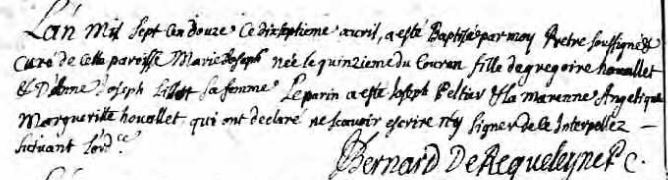 L'an mil sept cen douze ce dixseptieme avril, a esté Baptisée par moy Pretre soussigné &
Curé de cette paroisse Marie Joseph née le quinzieme du Couran fille de gregoire houallet
& D'Anne Joseph sa femme Le parin a esté Joseph Peltier & la marenne Angelique
Margueritte houallet qui ont declaré ne scavoir escrire ny signer de ce Interpellez –
suivant L'ord.ce
Bernard De Requeleyne P. C.